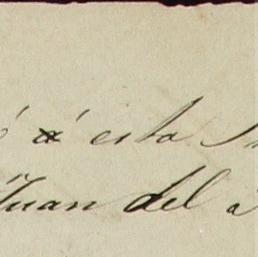 ó á esta
Juan del a